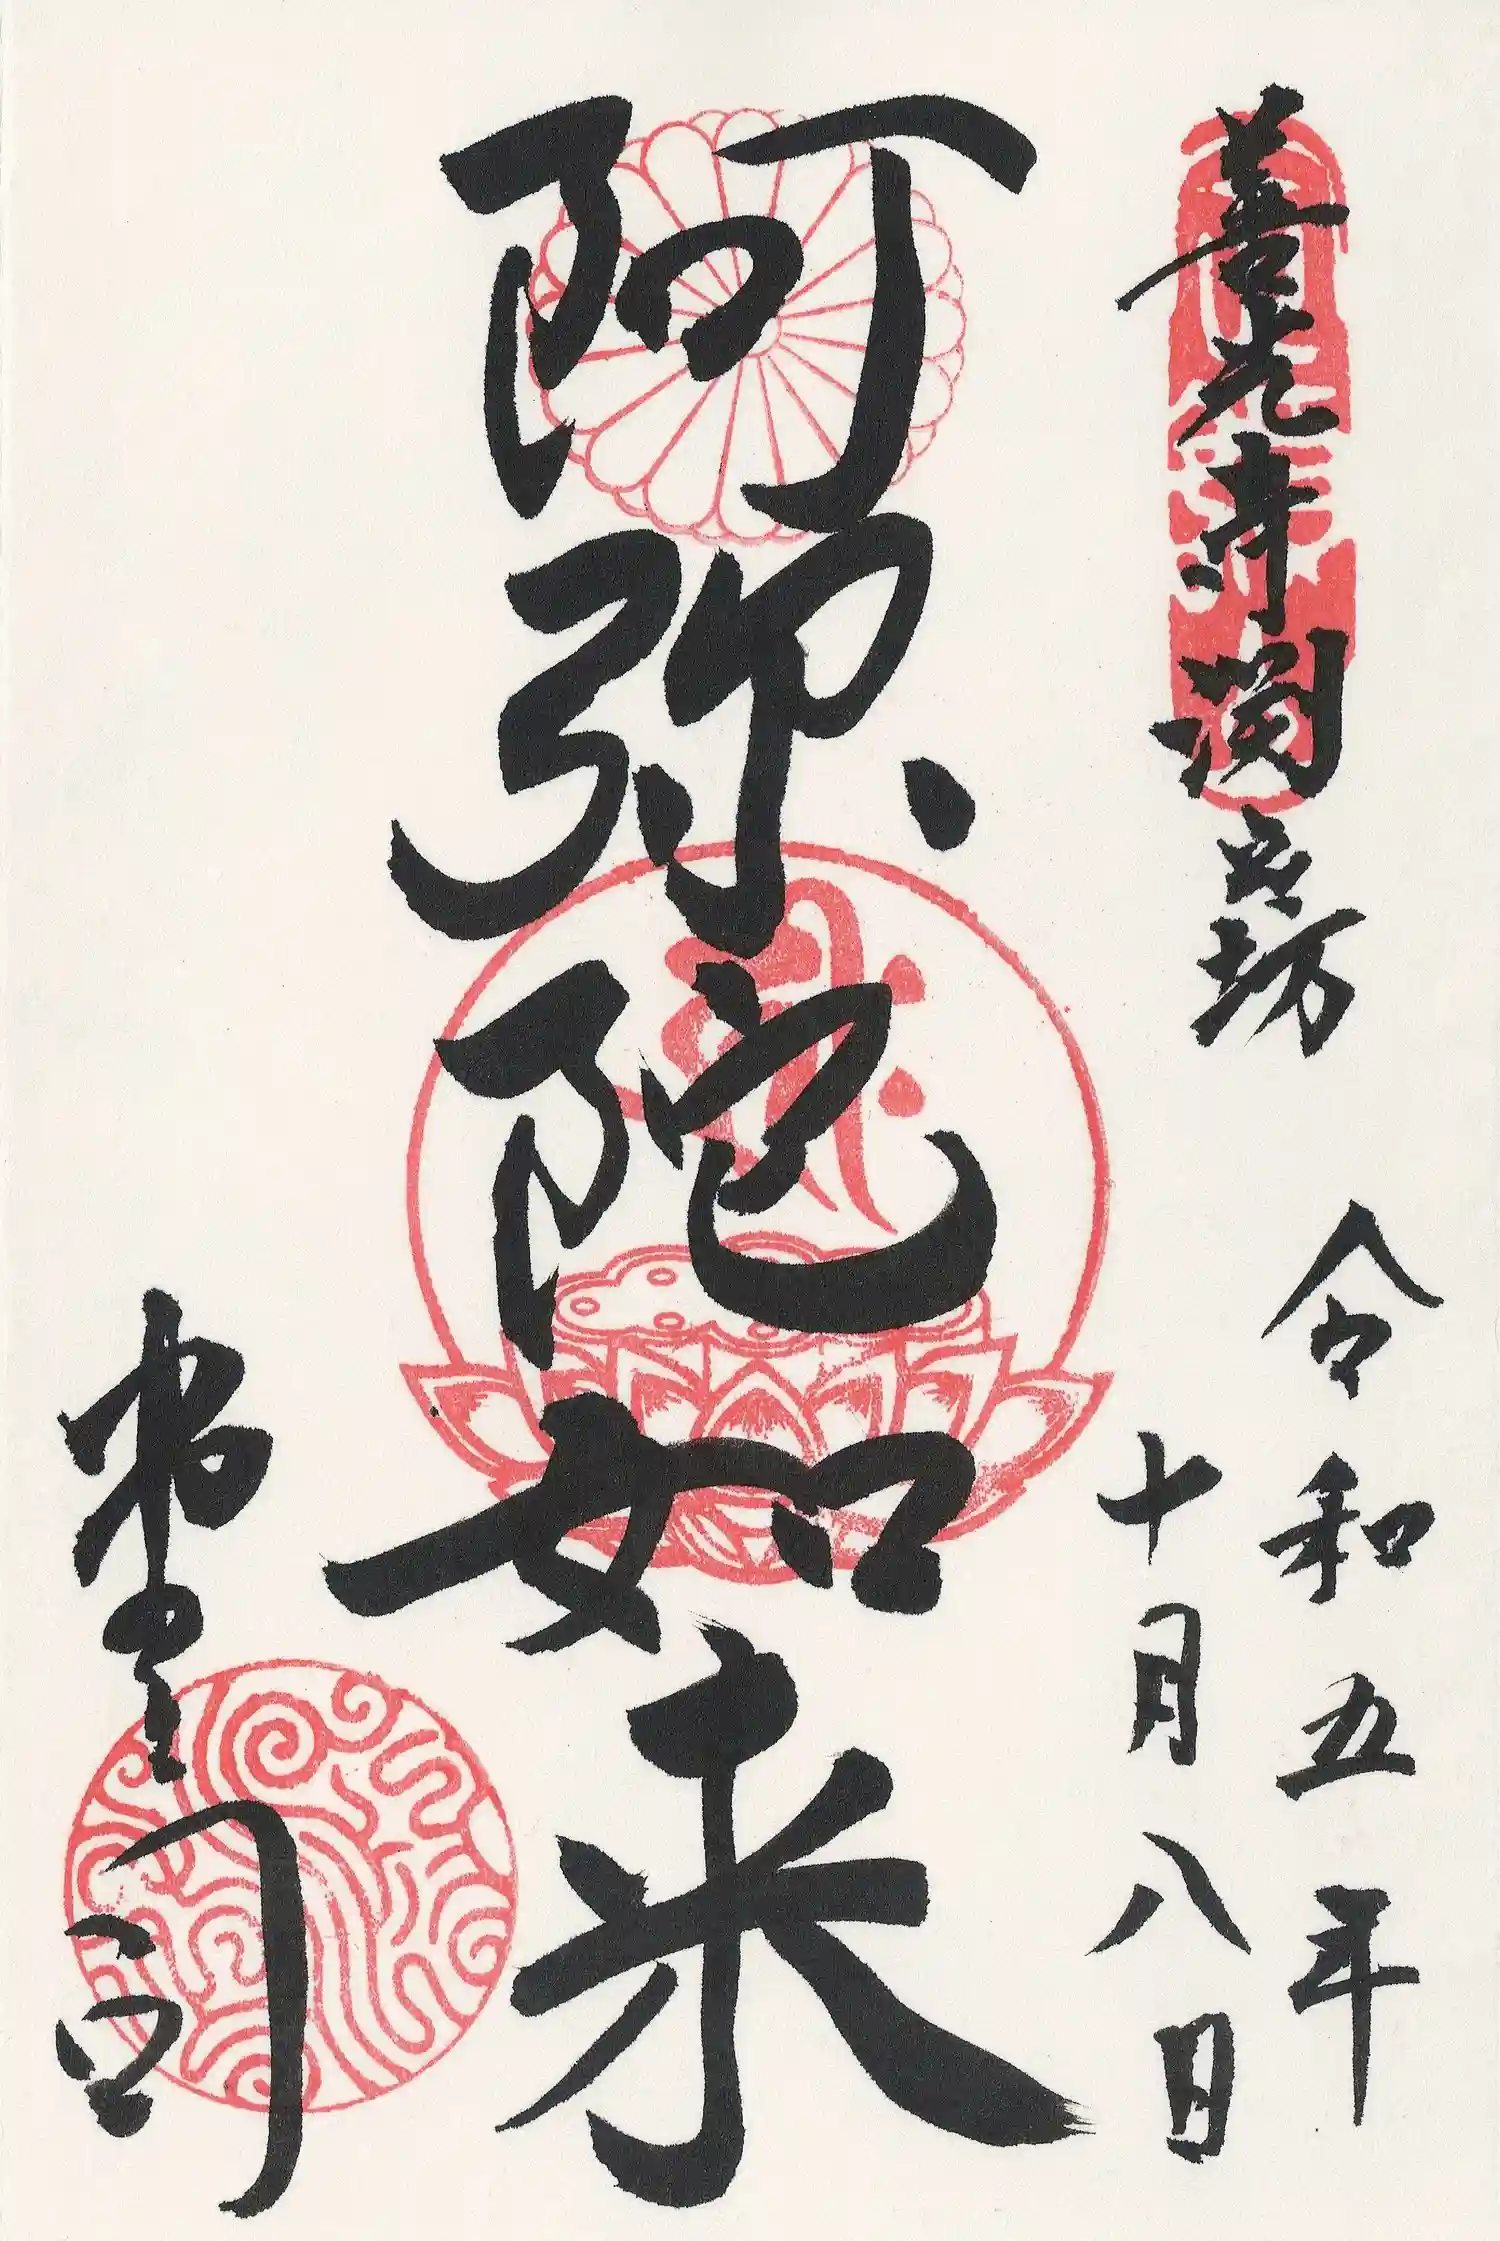 善光寺渕之坊
令和五年
十月八日
阿弥陀如来
堂司